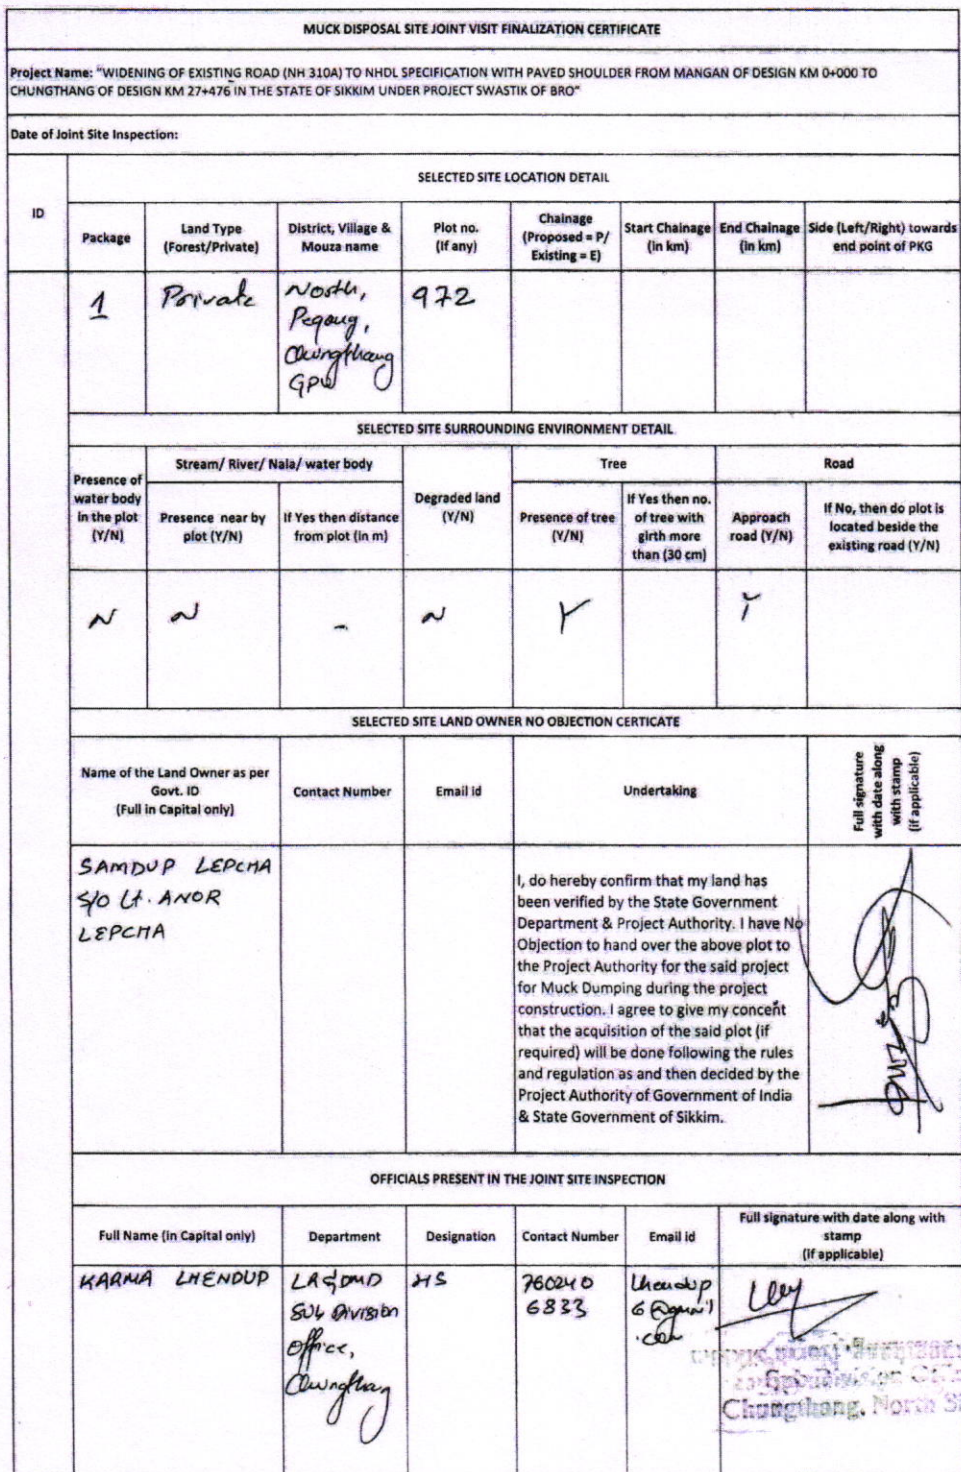 MUCK DISPOSAL SITE JOINT VISIT FINALIZATION CERTIFICATE
Project Name: "WIDENING OF EXISTING ROAD (NH 310A) TO NHDL SPECIFICATION WITH PAVED SHOULDER FROM MANGAN OF DESIGN KM 0+000 TO
CHUNGTHANG OF DESIGN KM 27+476 IN THE STATE OF SIKKIM UNDER PROJECT SWASTIK OF BRO"
Date of Joint Site Inspection:
ID
SELECTED SITE LOCATION DETAIL
Package
Land Type
(Forest/Private)
District, Village &
Mouza name
Plot no.
(If any)
Chainage
(Proposed = P/
Existing = E)
Start Chainage
(in km)
End Chainage
(in km)
Side (Left/Right) towards
end point of PKG
1
Private
North,
Pegong,
Chungthang
GPU
972
SELECTED SITE SURROUNDING ENVIRONMENT DETAIL
Presence of
water body
in the plot
(Y/N)
Stream/ River/ Nala/ water body
Presence near by
plot (Y/N)
If Yes then distance
from plot (in m)
Degraded land
(Y/N)
Tree
Presence of tree
(Y/N)
If Yes then no.
of tree with
girth more
than (30 cm)
Road
Approach
road (Y/N)
If No, then do plot is
located beside the
existing road (Y/N)
N
N
-
N
Y
Y
SELECTED SITE LAND OWNER NO OBJECTION CERTICATE
Name of the Land Owner as per
Govt. ID
(Full in Capital only)
Contact Number
Email id
Undertaking
Full signature
with date along
with stamp
(if applicable)
SAMDUP LEPCHA
S/O Lt. ANOR
LEPCHA
I, do hereby confirm that my land has
been verified by the State Government
Department & Project Authority. I have No
Objection to hand over the above plot to
the Project Authority for the said project
for Muck Dumping during the project
construction. I agree to give my concent
that the acquisition of the said plot (if
required) will be done following the rules
and regulation as and then decided by the
Project Authority of Government of India
& State Government of Sikkim.
OFFICIALS PRESENT IN THE JOINT SITE INSPECTION
Full Name (in Capital only)
Department
Designation
Contact Number
Email id
Full signature with date along with
stamp
(if applicable)
KARMA LHENDUP
LR&DMD
Sub Division
Office,
Chungthang
760240
6833
Lhendup
6@gmail
.com
Chungthang, North